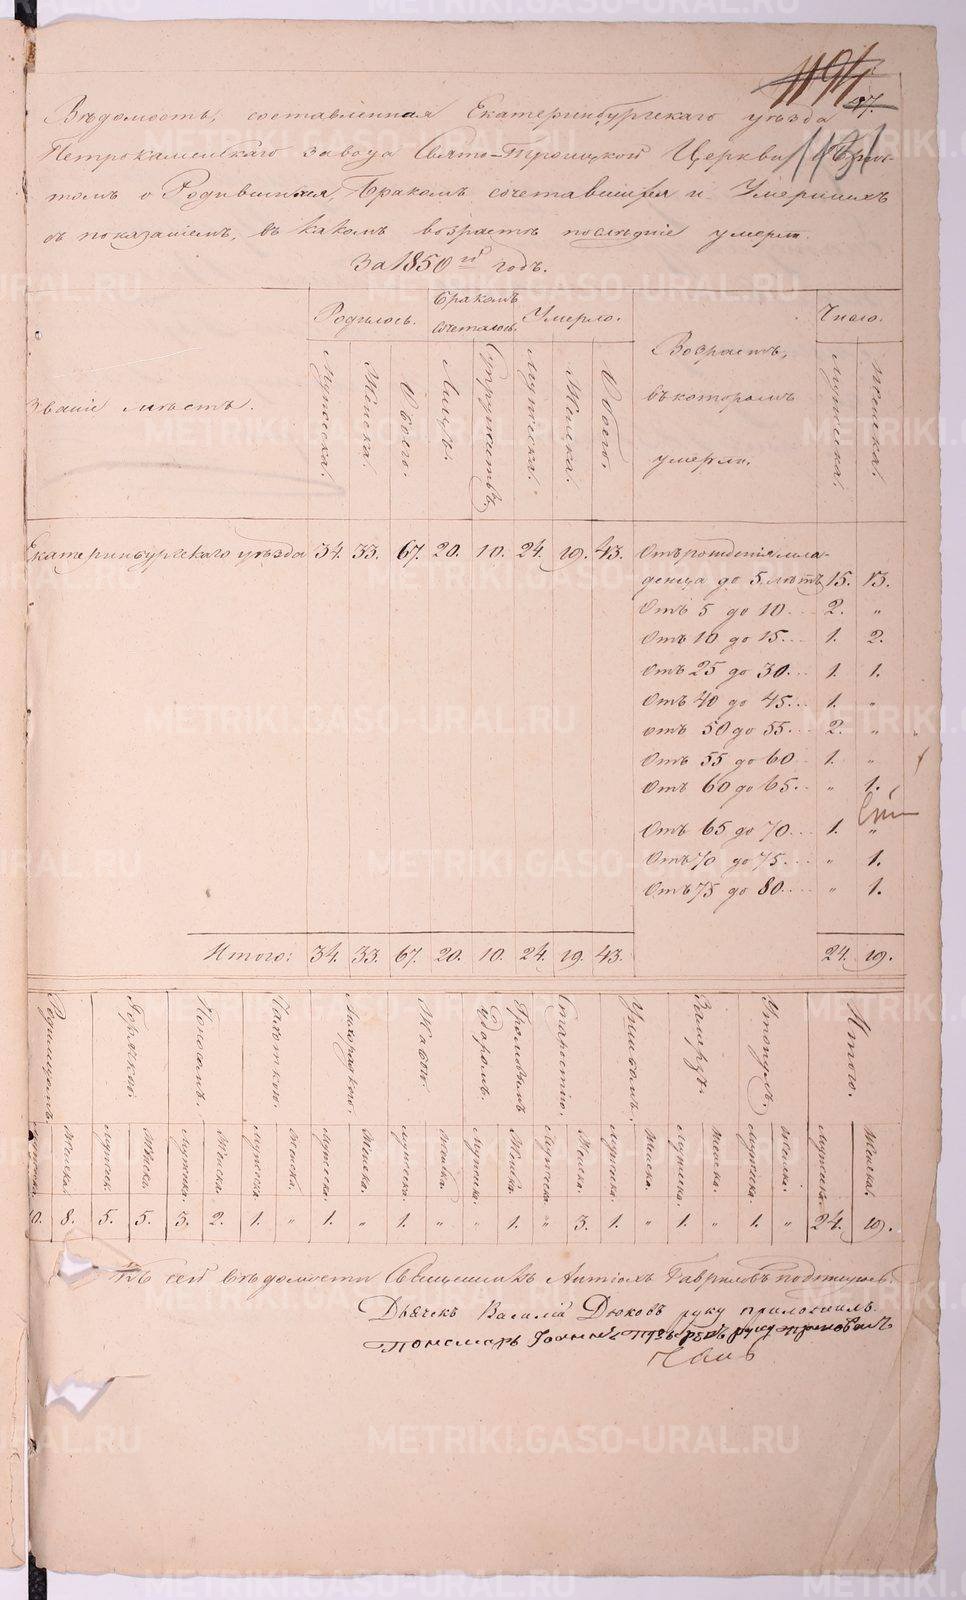 1194
Вѣдомость, составленная Екатеринбургскаго уѣзда 47.
Петрокаменскаго завода Свято-Троицкой Церкви
1131
томъ о Родившихся, Бракомъ сочетавшихся и Умершихъ
съ показаніемъ, въ какомъ возрастѣ послѣдніе умерли.
За 1850 й годъ.
Званіе мѣстъ. Родилось. Бракомъ сочеталось. Умерло. Возрастъ, въ которомъ умерли. Число.
Мужеска. Женска. Обоего. Лицъ. Супружествъ. Мужеска. Женска. Обоего. Мужеска. Женска.
Екатеринбургскаго уѣзда 34. 33. 67. 20. 10. 24. 19. 43. Отъ рожденія мла-
денца до 5 лѣтъ 15. 13.
Отъ 5 до 10. 2. "
Отъ 10 до 15. 1. 2.
Отъ 25 до 30. 1. 1.
Отъ 40 до 45. 1. "
отъ 50 до 55. 2. "
Отъ 55 до 60 1. "
Отъ 60 до 65. " 1.
Отъ 65 до 70. 1. "
Отъ 70 до 75. " 1.
Отъ 75 до 80. " 1.
Итого: 34. 33. 67. 20. 10. 24. 19. 43. 24. 19.
Родимцемъ. Горячкою. Поносомъ. Чахоткою. Лихорадкою. Жабою. Громовымъ ударомъ. Старостію. Ушибомъ. Замерзъ. Утонулъ. Итого.
Мужеска. Женска. Мужеск. Женска. Мужеска. Женска. Мужеска. Женска. Мужеска. Женска. Мужеска. Женска. Мужеска. Женска. Мужеска. Женска. Мужеска. Женска. Мужеска. Женска. Мужеска. Женска. Мужеска. Женска.
10. 8. 5. 5. 3. 2. 1. " 1. " 1. " " 1. " 3. 1. " 1. " 1. " 24. 19.
Къ сей вѣдомости Священникъ Антіохъ Гавриловъ подпишусь.
Дьячекъ Василій Дюковъ руку приложилъ
Пономарь руку
METRIKI.GASO-URAL.RU